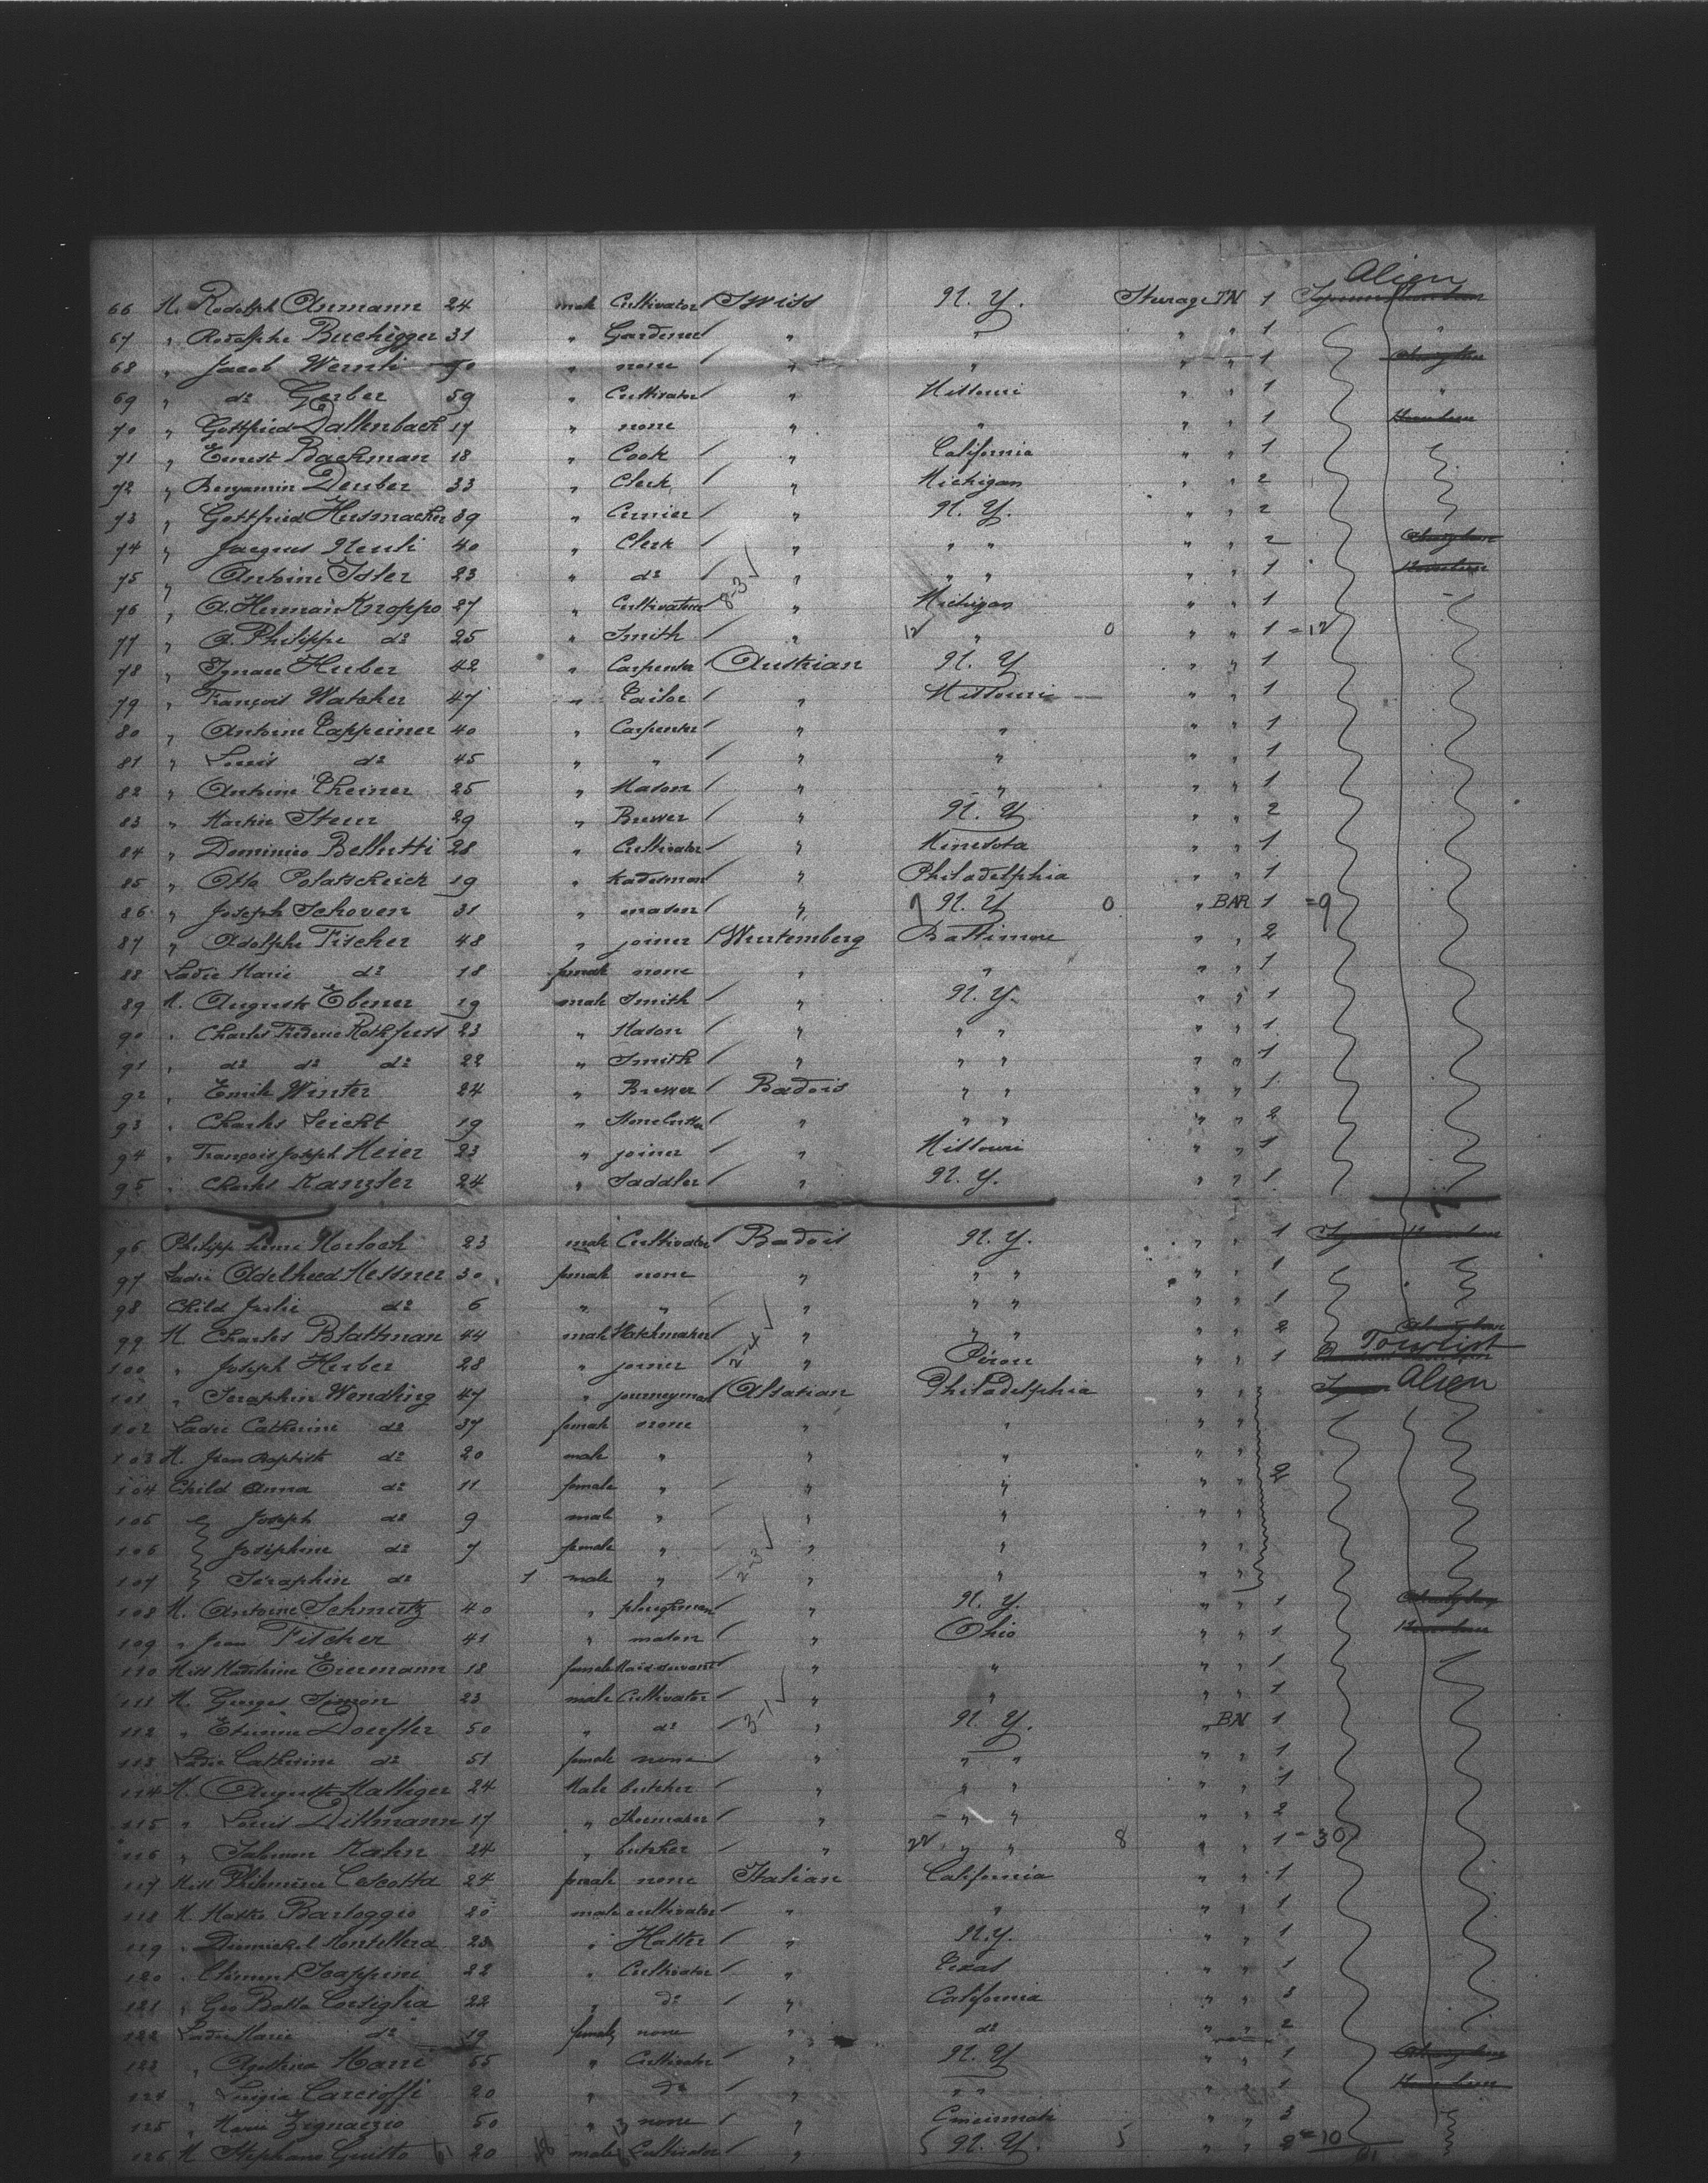 Alien
66 M. Rodolph Anmann 24 male Cultivator Swiss N. Y. Sturage TN 1
67 " Rodolphe Buchegger 31 " Gardener " " " " 1 "
68 " Jacob Wernli 50 " none " " " " 1
69 " do Gerber 59 " Cultivator " Missouri " " 1 "
70 " Gottfried Dallenbach 17 " none " " " " 1
71 " Ernest Backman 18 " Cook " California " " 1
72 " Benjamin Deuber 33 " Clerk " Michigan " " 2
73 " Gottfried Husmacher 39 " Currier " N. Y. " " 2
74 " Jacques Nenli 40 " Clerk " " " " " 2
75 " Antoine Isler 23 " do " " " " " 1
76 " A. Herman Knoppo 27 " Cultivator 8-3 " Michigan " " 1
77 " A. Philippe do 25 " Smith " 12 " 0 " " 1 = 12
78 " Ignace Huber 42 " Carpenter Austrian N. Y " " 1
79 " François Watcher 47 " Tailor " Missouri " " 1
80 " Antoine Tappeiner 40 " Carpenter " " " " 1
81 " Louis do 45 " " " " " " 1
82 " Antoine Theiner 25 " Mason " " " " 1
83 " Martin Steur 29 " Brewer " N. Y " " 2
84 " Dominico Bellutti 28 " Cultivator " Minesota " " 1
85 " Otto Polatscheick 19 " tradesman " Philadelphia " " 1
86 " Joseph Schoven 31 " mason " 9 N. Y 0 " BAR 1 = 9
87 " Adolphe Fischer 48 " joiner Wurtemberg Baltimore " " 2
88 Ladie Marie do 18 female none " " " " 1
89 M. Auguste Ebener 19 male Smith " N. Y. " " 1
90 " Charles Frederic Rothfuss 23 " Mason " " " " " 1
91 " do do do 22 " Smith " " " " " 1
92 " Emile Winter 24 " Brewer Badois " " " " 1
93 " Charles Leicht 19 " Stone Cutter " " " " " 2
94 " François Joseph Meier 23 " joiner " Missouri " " 1
95 " Charles Kanzler 24 " Saddler " N. Y. " " 1
96 Philipp Horloch 23 male Cultivator Badois N. Y. " " 1
97 Ladie Adelheed Messmer 30 female none " " " " " 1
98 Child Julie do 6 " " " " " " " 1
99 M Charles Blattman 44 male Watchmaker " " " " " 2
100 " Joseph Herber 28 " joiner 2-4 " " " 1 Tourist
101 " Seraphin Wendling 47 " journeyman Alsatian Philadelphia " " Alien
102 Ladie Catherine do 37 female none " " " "
103 M. Jean Baptiste do 20 male " " " " "
104 Child Anna do 11 female " " " " " 2
105 " Joseph do 9 male " " " " "
106 " Joséphine do 7 female " " " " "
107 " Séraphin do 1 male " 2-3 " " " "
108 M. Antoine Schmutz 40 " ploughman " N. Y. " " 1
109 " Jean Fischer 41 " mason " Ohio " " 1
110 Miss Madeleine Eiermann 18 female Maid servant " " " " 1
111 M. Georges Simon 23 male Cultivator " " " " 1
112 " Etienne Doerfler 50 " do 3-1 " N. Y. " BN 1
113 Ladie Catherine do 51 female none " " " " " 1
114 M. Auguste Malliger 24 Male butcher " " " " " 1
115 " Louis Dillmann 17 " Shoemaker " " " " " 2
116 " Salomon Kahn 24 " butcher " 22 " " 8 " " 1 = 30
117 Miss Philomène Cescotta 24 female none Italian California " " 1
118 M. Matteo Barloggio 20 male cultivator " " " " 1
119 " 23 " Hatter " N.Y. " " 1
120 " Clement Scappini 22 " Cultivator " Texas " " 1
121 " Geo Batta Corsiglia 22 " do " California " " 3
122 Ladie Marie do 19 female none " do " " 2
123 " Agostina Marri 55 " Cultivator " N. Y " " 1
124 " Luigia Carcioffi 20 " do " " " " " 1
125 " Marie Zignaczio 50 " none " Cincinnati " " 3
126 M Stephano Guisto 20 male Cultivator " 5 N. Y. 5 " " 2 = 10
61